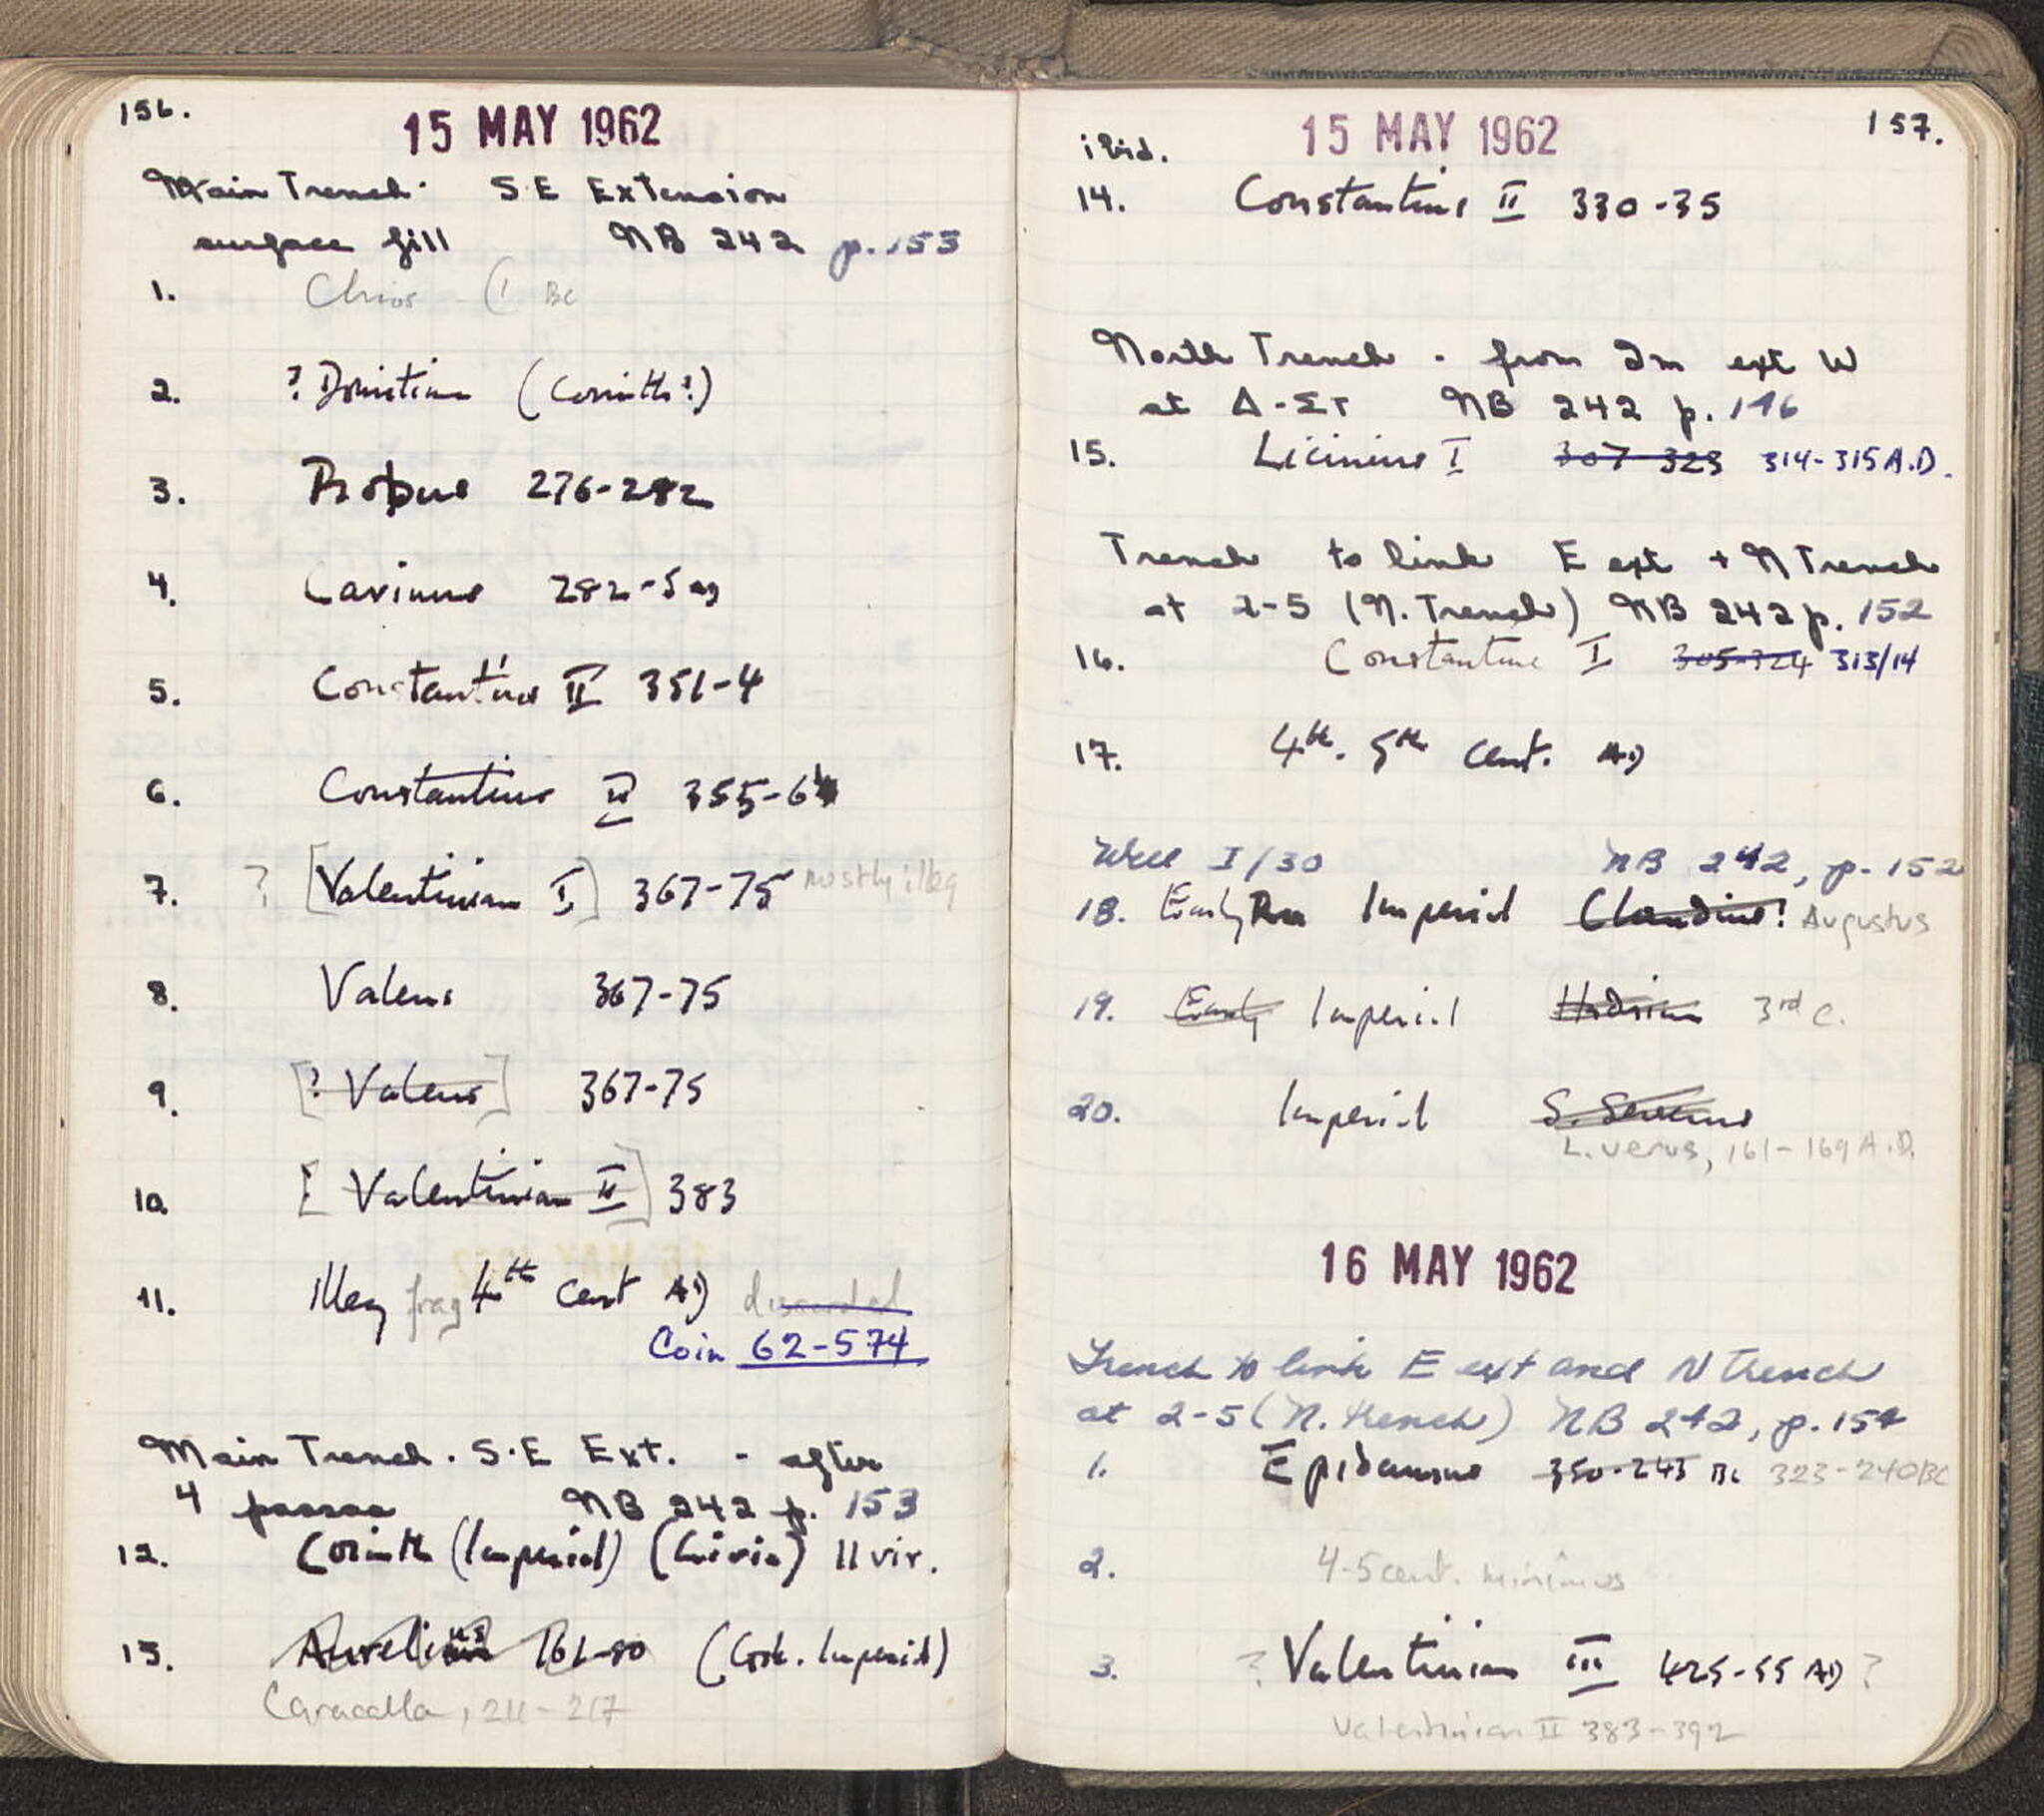 156.
15 MAY 1962
Main Trench. S E Extension
surface fill NB 242 p. 153
1. Chios BC
2. ? Domitian (Corinth?)
3. Probus 276-282
4. Carinus 282-5 AD
5. Constantius II 351-4
6. Constantius II 355-61
7. ? [Valentinian I] 367-75 mostly illeg
8. Valens 367-75
9. [? Valens] 367-75
10. [Valentinian II] 383
11. Illeg frag 4th cent AD discarded
Coin 62-574
Main Trench. S.E Ext. - after
4 passes NB 242 p. 153
12. Corinth (Imperial) (Livia) II vir.
13. Aurelius 161-80 (Cor. Imperial)
Caracalla, 211-217
157.
15 MAY 1962
ibid.
14. Constantius II 330-35
North Trench - from 2m ext W
at Δ-Στ NB 242 p. 146
15. Licinius I 307-323 314-315 A.D.
Trench to link E ext + N Trench
at 2-5 (N. Trench) NB 242 p. 152
16. Constantine I 305-324 313/14
17. 4th. 5th cent. AD
Well I/30 NB 242, p. 152
18. Early Imperial Claudius! Augustus
19. Early Imperial Hadrian 3rd c.
20. Imperial S. Severus
L. Verus, 161-169 A.D.
16 MAY 1962
Trench to link E ext and N trench
at 2-5 (N. trench) NB 242, p. 154
1. Epidamnus 350-243 BC 323-240 BC
2. 4-5 cent. minimus
3. ? Valentinian III 425-55 AD ?
Valentinian II 383-392